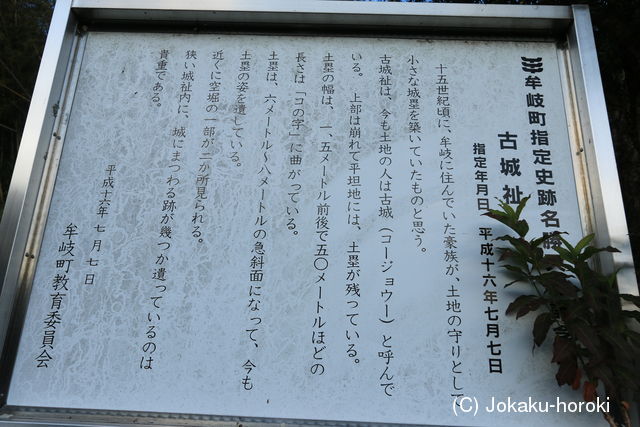 牟岐町指定史跡名勝
古城祉
指定年月日 平成十六年七月七日
十五世紀頃に、牟岐に住んでいた豪族が、土地の守りとして
小さな城塁を築いていたものと思う。
古城祉は、今も土地の人は古城（コージョウー）と呼んで
いる。上部は崩れて平坦地には、土塁が残っている。
土塁の幅は、一、五メートル前後で五〇メートルほどの
長さは「コの字」に曲がっている。
土塁は、六メートル～八メートルの急斜面になって、今も
土塁の姿を遺している。
近くに空堀の一部が二か所見られる。
狭い城祉内に、城にまつわる跡が幾つか遺っているのは
貴重である。
平成十六年七月七日
牟岐町教育委員会
(C) Jokaku-horoki